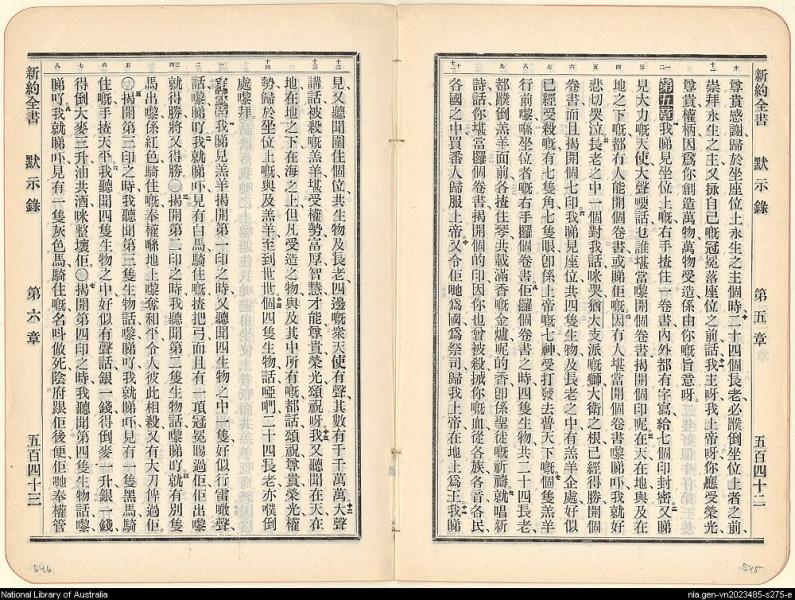 新約全書 默示錄 第五章 五百四十二
尊貴感謝歸於坐座位上永生之主個時二十四個長老必蹼倒坐位上者之前
崇拜永生之主又捸自己嘅冠冕落座位之前話我主呀我上帝呀你應受榮光
尊貴權柄因爲你創造萬物萬物受造係由你嘅旨意呀
第五章我睇見坐位上嘅右手揸住一卷書內外都有字寫給七個印封密又睇
見大力嘅天使大聲嗌話乜誰堪當嚟開個卷書揭開個印呢在天在地與及在
地之下嘅都冇人能開個卷書或睇佢嘅因冇人堪當開個卷書嚟睇吓我就好
悲切哭泣長老之中一個對我話咪哭猶大支派嘅獅大衛之根已經得勝開個
卷書而且揭開個七印我睇見座位共四隻生物及長老之中有羔羊企處好似
已經受殺嘅有七隻角七隻眼卽係上帝嘅七神受打發去普天下嘅個隻羔羊
行前嚟喺坐位者嘅右手攞個卷書佢攞個卷書之時四隻生物共二十四長老
都蹼倒羔羊面前各揸住琴共載滿香嘅金爐呢的香卽係聖徒嘅祈禱就唱新
詩話你堪當攞個卷書揭開個的印因你也曾被殺搣你嘅血從各族各音各民
各國之中買番人歸服上帝又令佢哋爲國爲祭司歸我上帝在地上爲王我睇
見又聽聞圍住個位共生物及長老四邊嘅衆天使有聲其數有千千萬萬大聲
講話被殺嘅羔羊堪受權勢富厚智慧才能尊貴榮光頌祝呀我又聽聞在天在
地在地之下在海之上但凡受造之物與及其中所有嘅都話頌祝尊貴榮光權
勢歸於坐位上嘅與及羔羊至到世世個四隻生物話啞們二十四長老亦噗倒
處嚟拜
第六章我睇見羔羊揭開第一印之時又聽聞四生物之中一隻好似行雷噉聲
話嚟睇吖我就睇吓見有白馬騎住嘅揸把弓而且有一頂冠冕賜過佢佢出嚟
就得勝將又得勝○揭開第二印之時我聽聞第二隻生物話嚟睇吖就有別隻
馬出嚟係紅色騎住嘅奉權喺地上嚟奪和平令人彼此相殺又有大刀俾過佢
○揭開第三印之時我聽聞第三隻生物話嚟睇吖我就睇吓見有一隻黑馬騎
住嘅手揸天平我聽聞四隻生物之中好似有聲話銀一錢得倒麥一升銀一錢
得倒大麥三升油共酒咪整壞佢○揭開第四印之時我聽聞第四隻生物話嚟
睇吖我就睇吓見有一隻灰色馬騎住嘅名呌做死陰府跟佢後便佢哋奉權管
新約全書 默示錄 第六章 五百四十三
546
545
National Library of Australia
nla.gen-vn2023485-s275-e